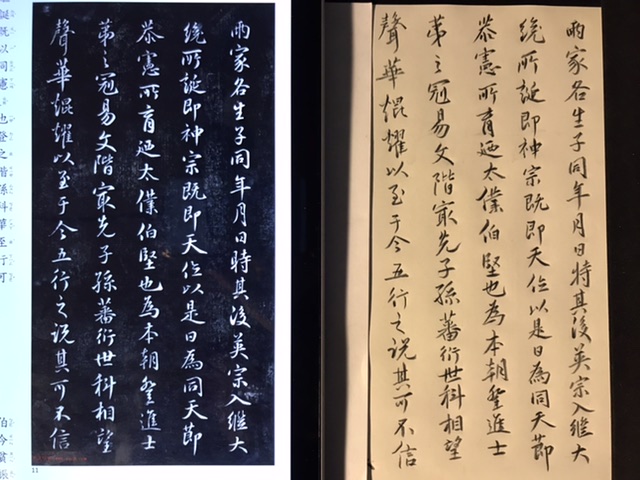 兩家各生子同年月日時其後英宗入繼大
統所誕即神宗既即天位以是日為同天節
恭憲所育迺太僕伯堅也為本朝登進士
第之冠易文階寂先子孫蕃衍世科相望
聲華焜耀以至于今五行之說其可不信
兩家各生子同年月日時其後英宗入繼大
統所誕即神宗既即天位以是日為同天節
恭憲所育迺太僕伯堅也為本朝登進士
第之冠易文階寂先子孫蕃衍世科相望
聲華焜耀以至于今五行之說其可不信
誕既以同憲也登之階孫科第至行可
伯今翁張
11